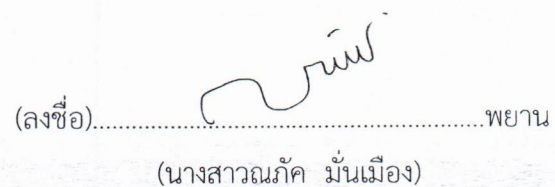 (ลงชื่อ)....................................................................พยาน
(นางสาวณภัค มั่นเมือง)